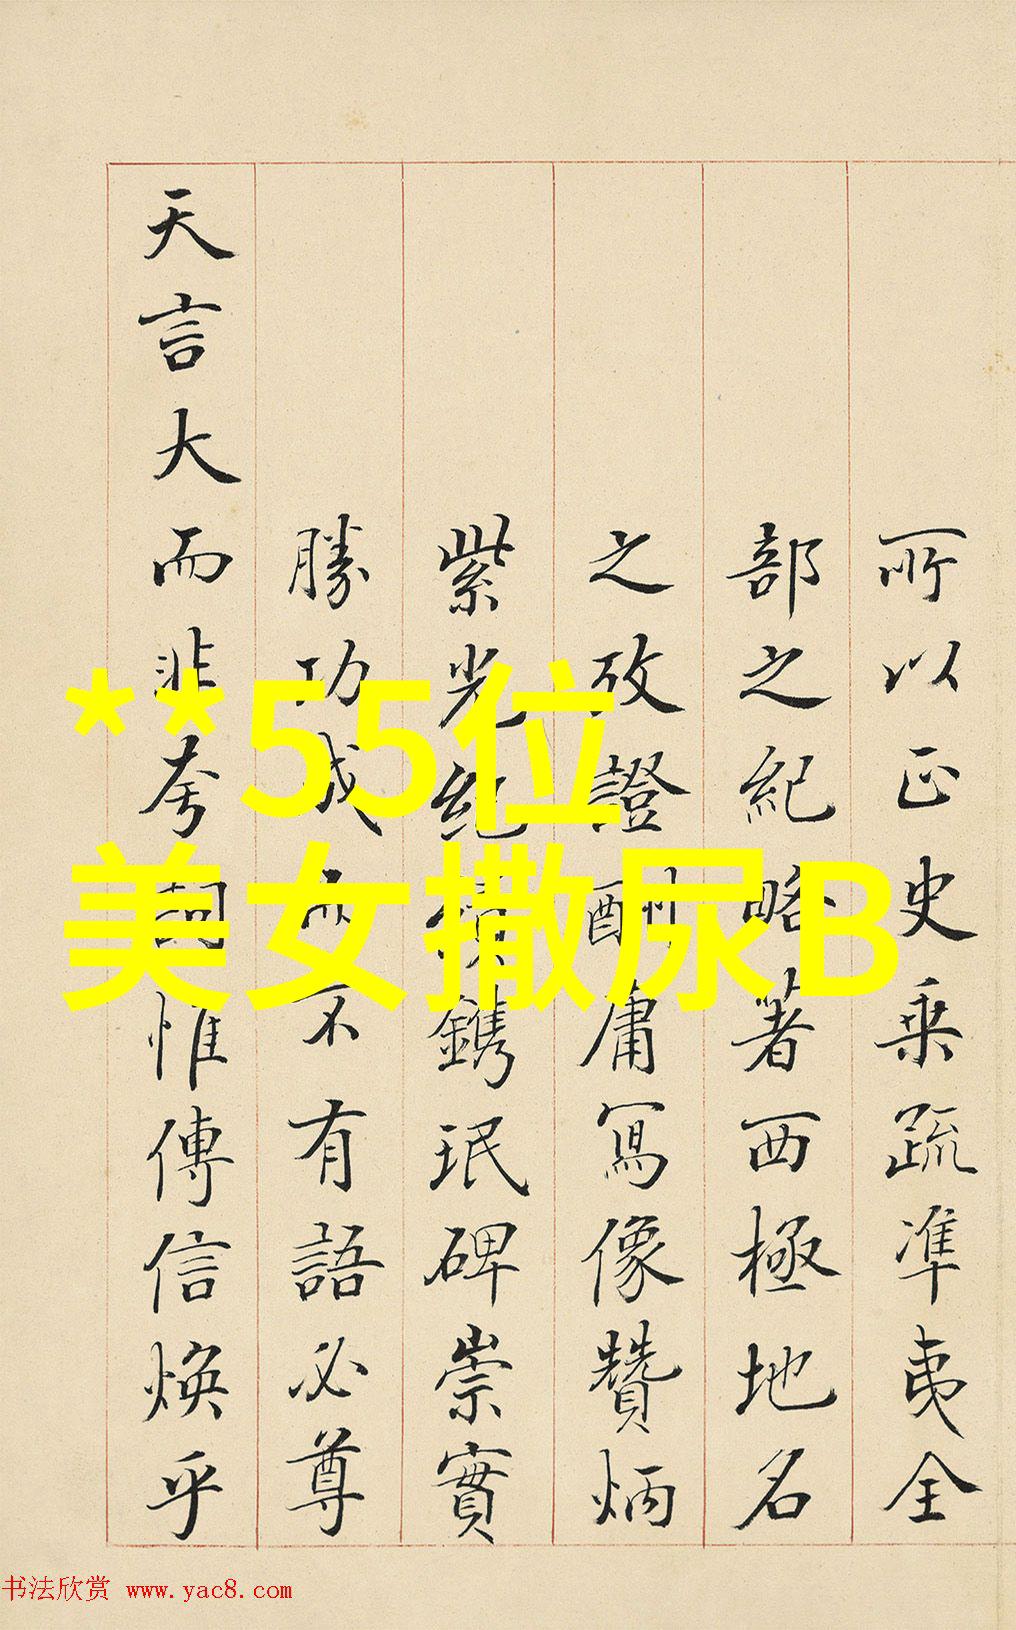 所以正史乗疏準夷全
部之紀略著西極地名
之攷證酬庸寫像贊炳
紫光紀績鐫珉碑崇實
勝功成而不有語必尊
天言大而非夸詞惟傳信煥乎
**55位
美女撒尿B
书法欣赏 www.yac8.com